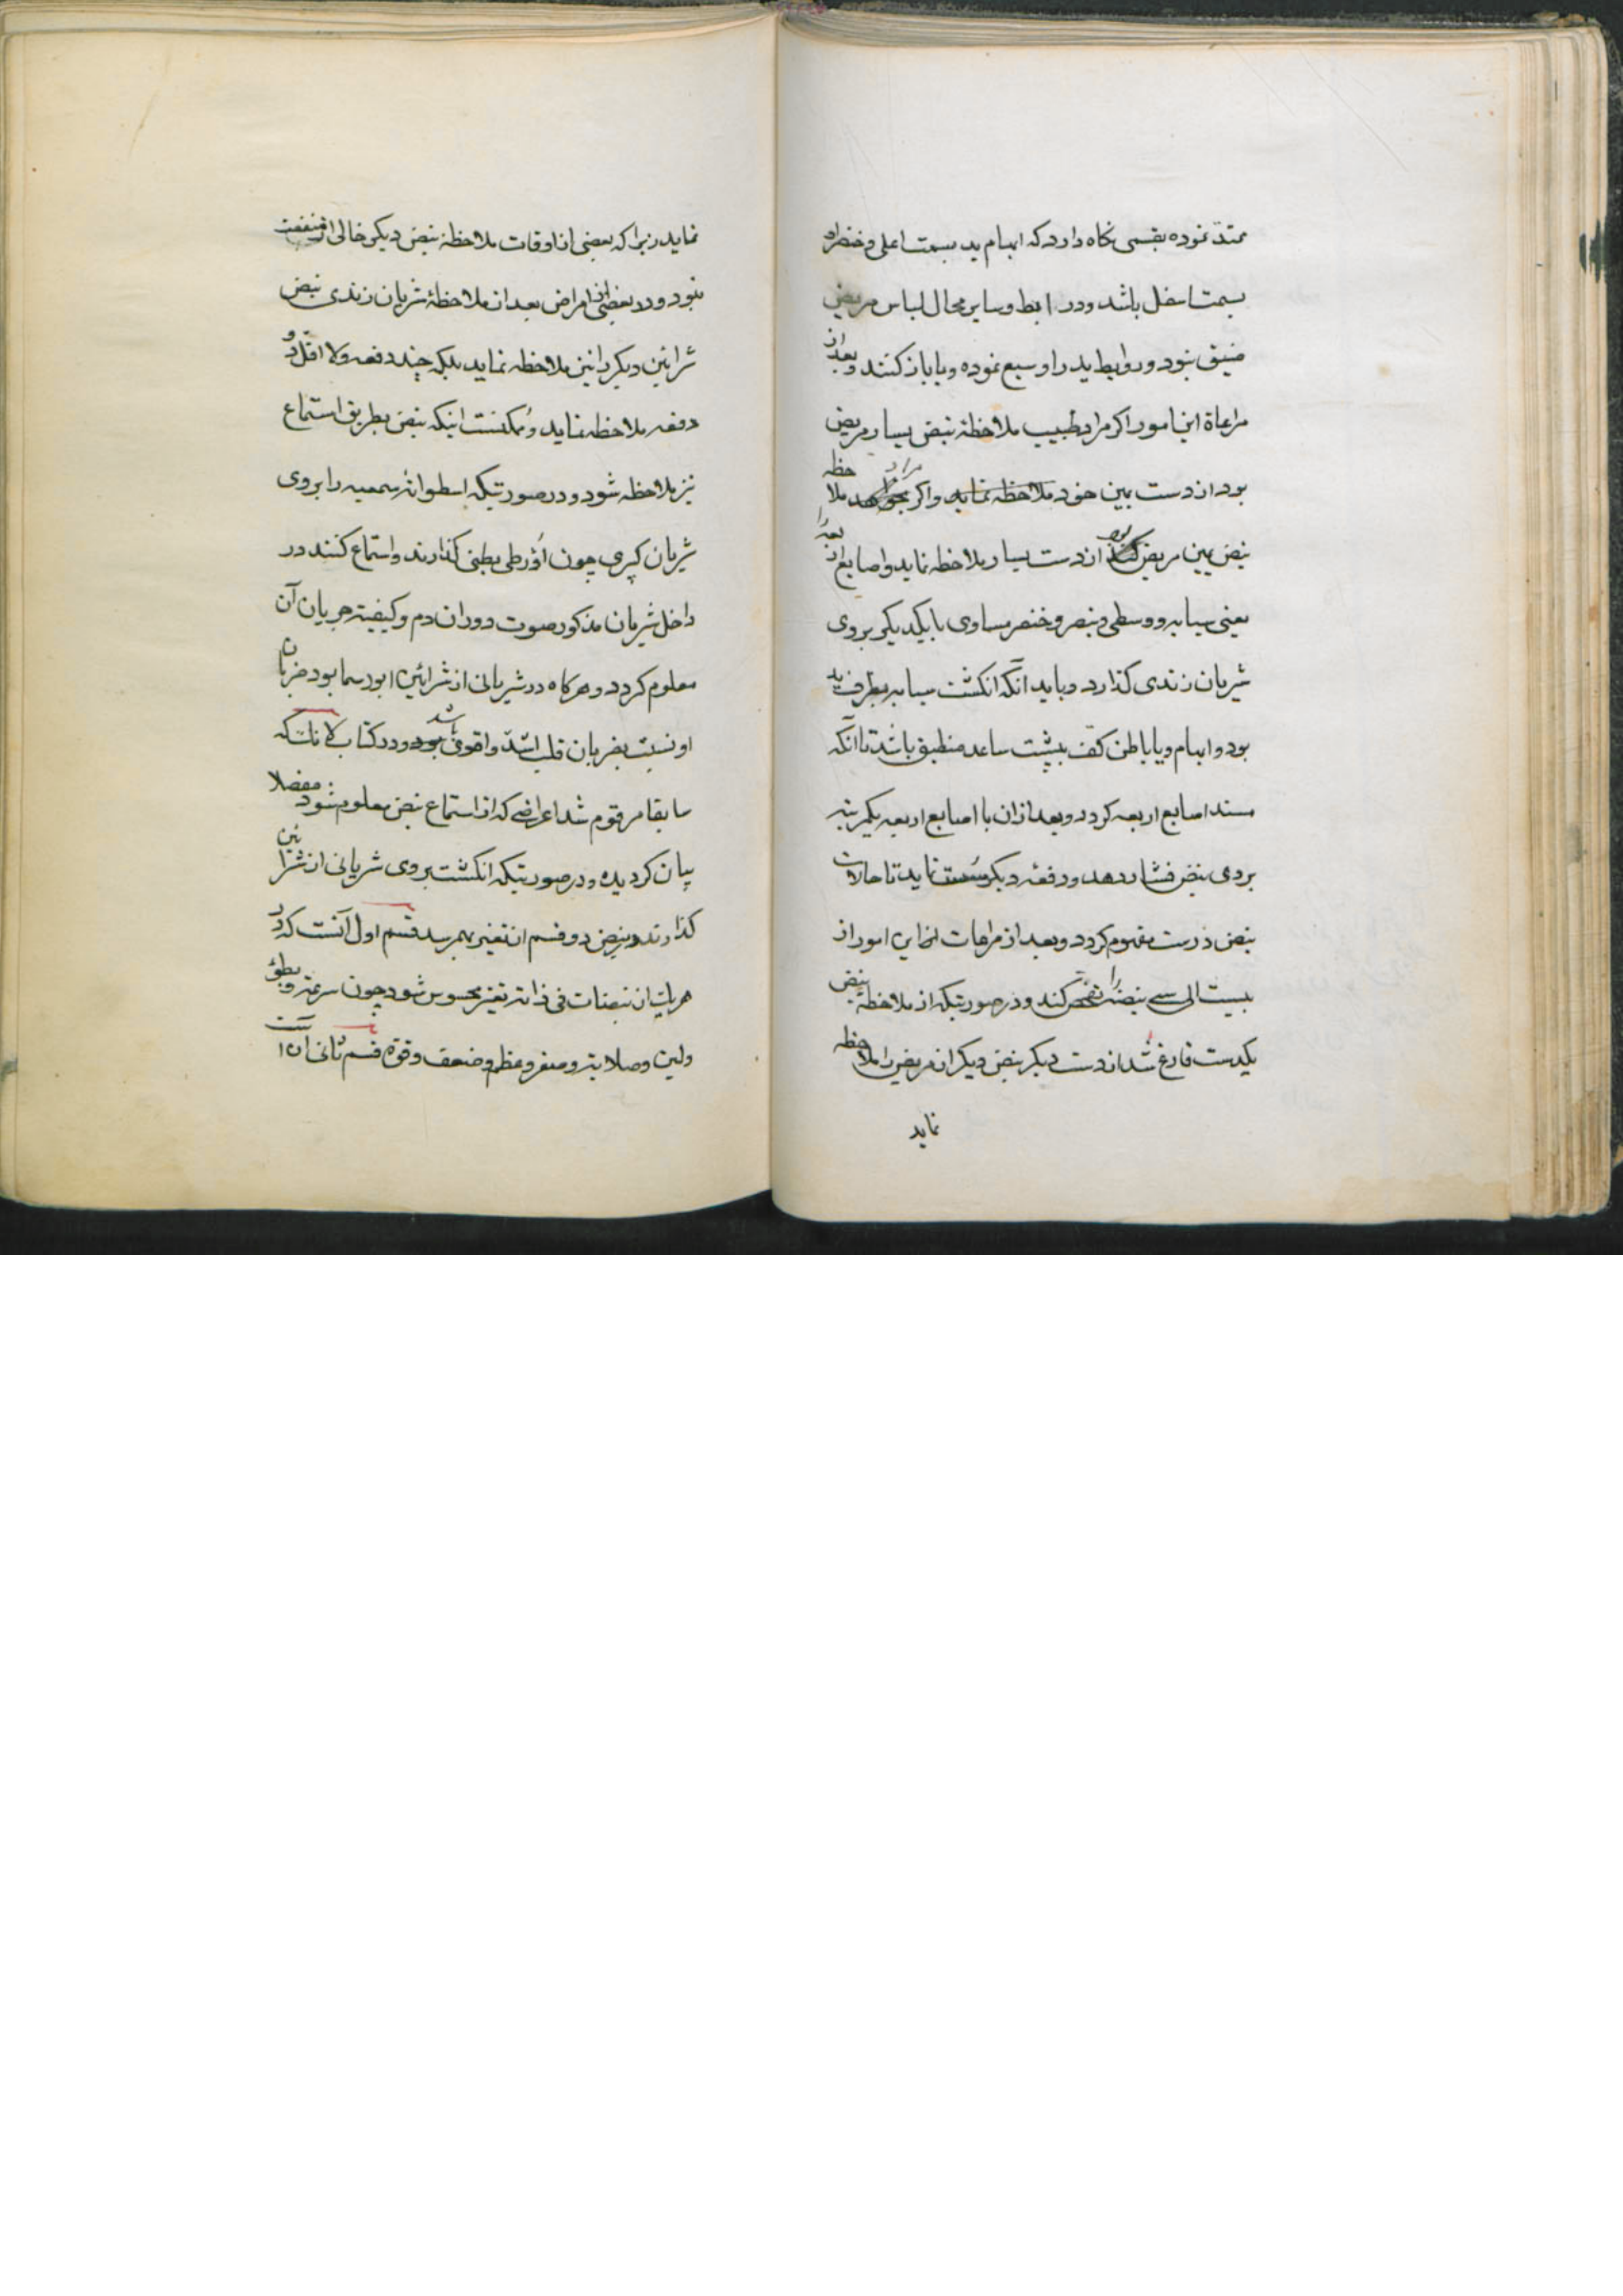 ممتد نموده بقسمی نکاه دارد که ابهام ید بسمت اعلی و خنصر او
بسمت اسفل باشد ودر ابط وسایر محال لباس مریض
ضیق نبود و روابط ید را وسیع نموده ویا باز کنند وبعد از
مراعاة این امور اکر مراد طبیب ملاحظهٔ نبض یسار مریض
بود از دست یمین خود ملاحظه نماید واکر مراد ملاحظه
نبض یمین مریض بود از دست یسار ملاحظه نماید واصابع اربعه را
یعنی سبابه و وسطی و بنصر و خنصر مساوی با یکدیکر بروی
شریان زندی کذارد وباید آنکه انکشت سبابه بطرف ید
بود وابهام ویا باطن کف بپشت ساعد منطبق باشد تا آنکه
مسند اصابع اربعه کردد وبعد از ان با اصابع اربعه یکمرتبه
بروی نبض فشار دهد ودفعهٔ دیکر سست نماید تا حالات
نبض درست مفهوم کردد وبعد از مراعات این امور از
بیست الی سی نبضه را تفحص کند ودر صورتیکه از ملاحظهٔ نبض
یکدست فارغ شد از دست دیکر نبض دیکر از مریض را ملاحظه
نماید
نماید زیرا که بعضی از اوقات ملاحظهٔ نبض دیکر خالی از منفعت
نبود ودر بعضی از امراض بعد از ملاحظهٔ شریان زندی نبض
شرائین دیکر را نیز ملاحظه نماید بلکه چند دفعه ولا اقل دو
دفعه ملاحظه نماید وممکنست اینکه نبض بطریق استماع
نیز ملاحظه شود ودر صورتیکه اسطوانهٔ سمعیه را بروی
شریان کبری چون اؤرطی بطنی کذارند واستماع کنند در
داخل شریان مذکور صوت دوران دم وکیفیته جریان آن
معلوم کردد وهرکاه در شریانی از شرائین ابورسما بود ضربان
او نسبت بضربان قلب اشد واقوی باشد ودر کتاب کانتسکه
سابقا مرقوم شد اعراضی که از استماع نبض معلوم شود مفصلا
بیان کردیده ودر صورتیکه انکشت بروی شریانی از شرائین
کذارند در نبض دو قسم از تغیر بهم رسد قسم اول آنست که در
هر یک از نبضات فی ذاته تغیر محسوس شود چون سرعته وبطؤ
ولین وصلابته وصغر وعظم وضعف وقوة قسم ثانی آن است